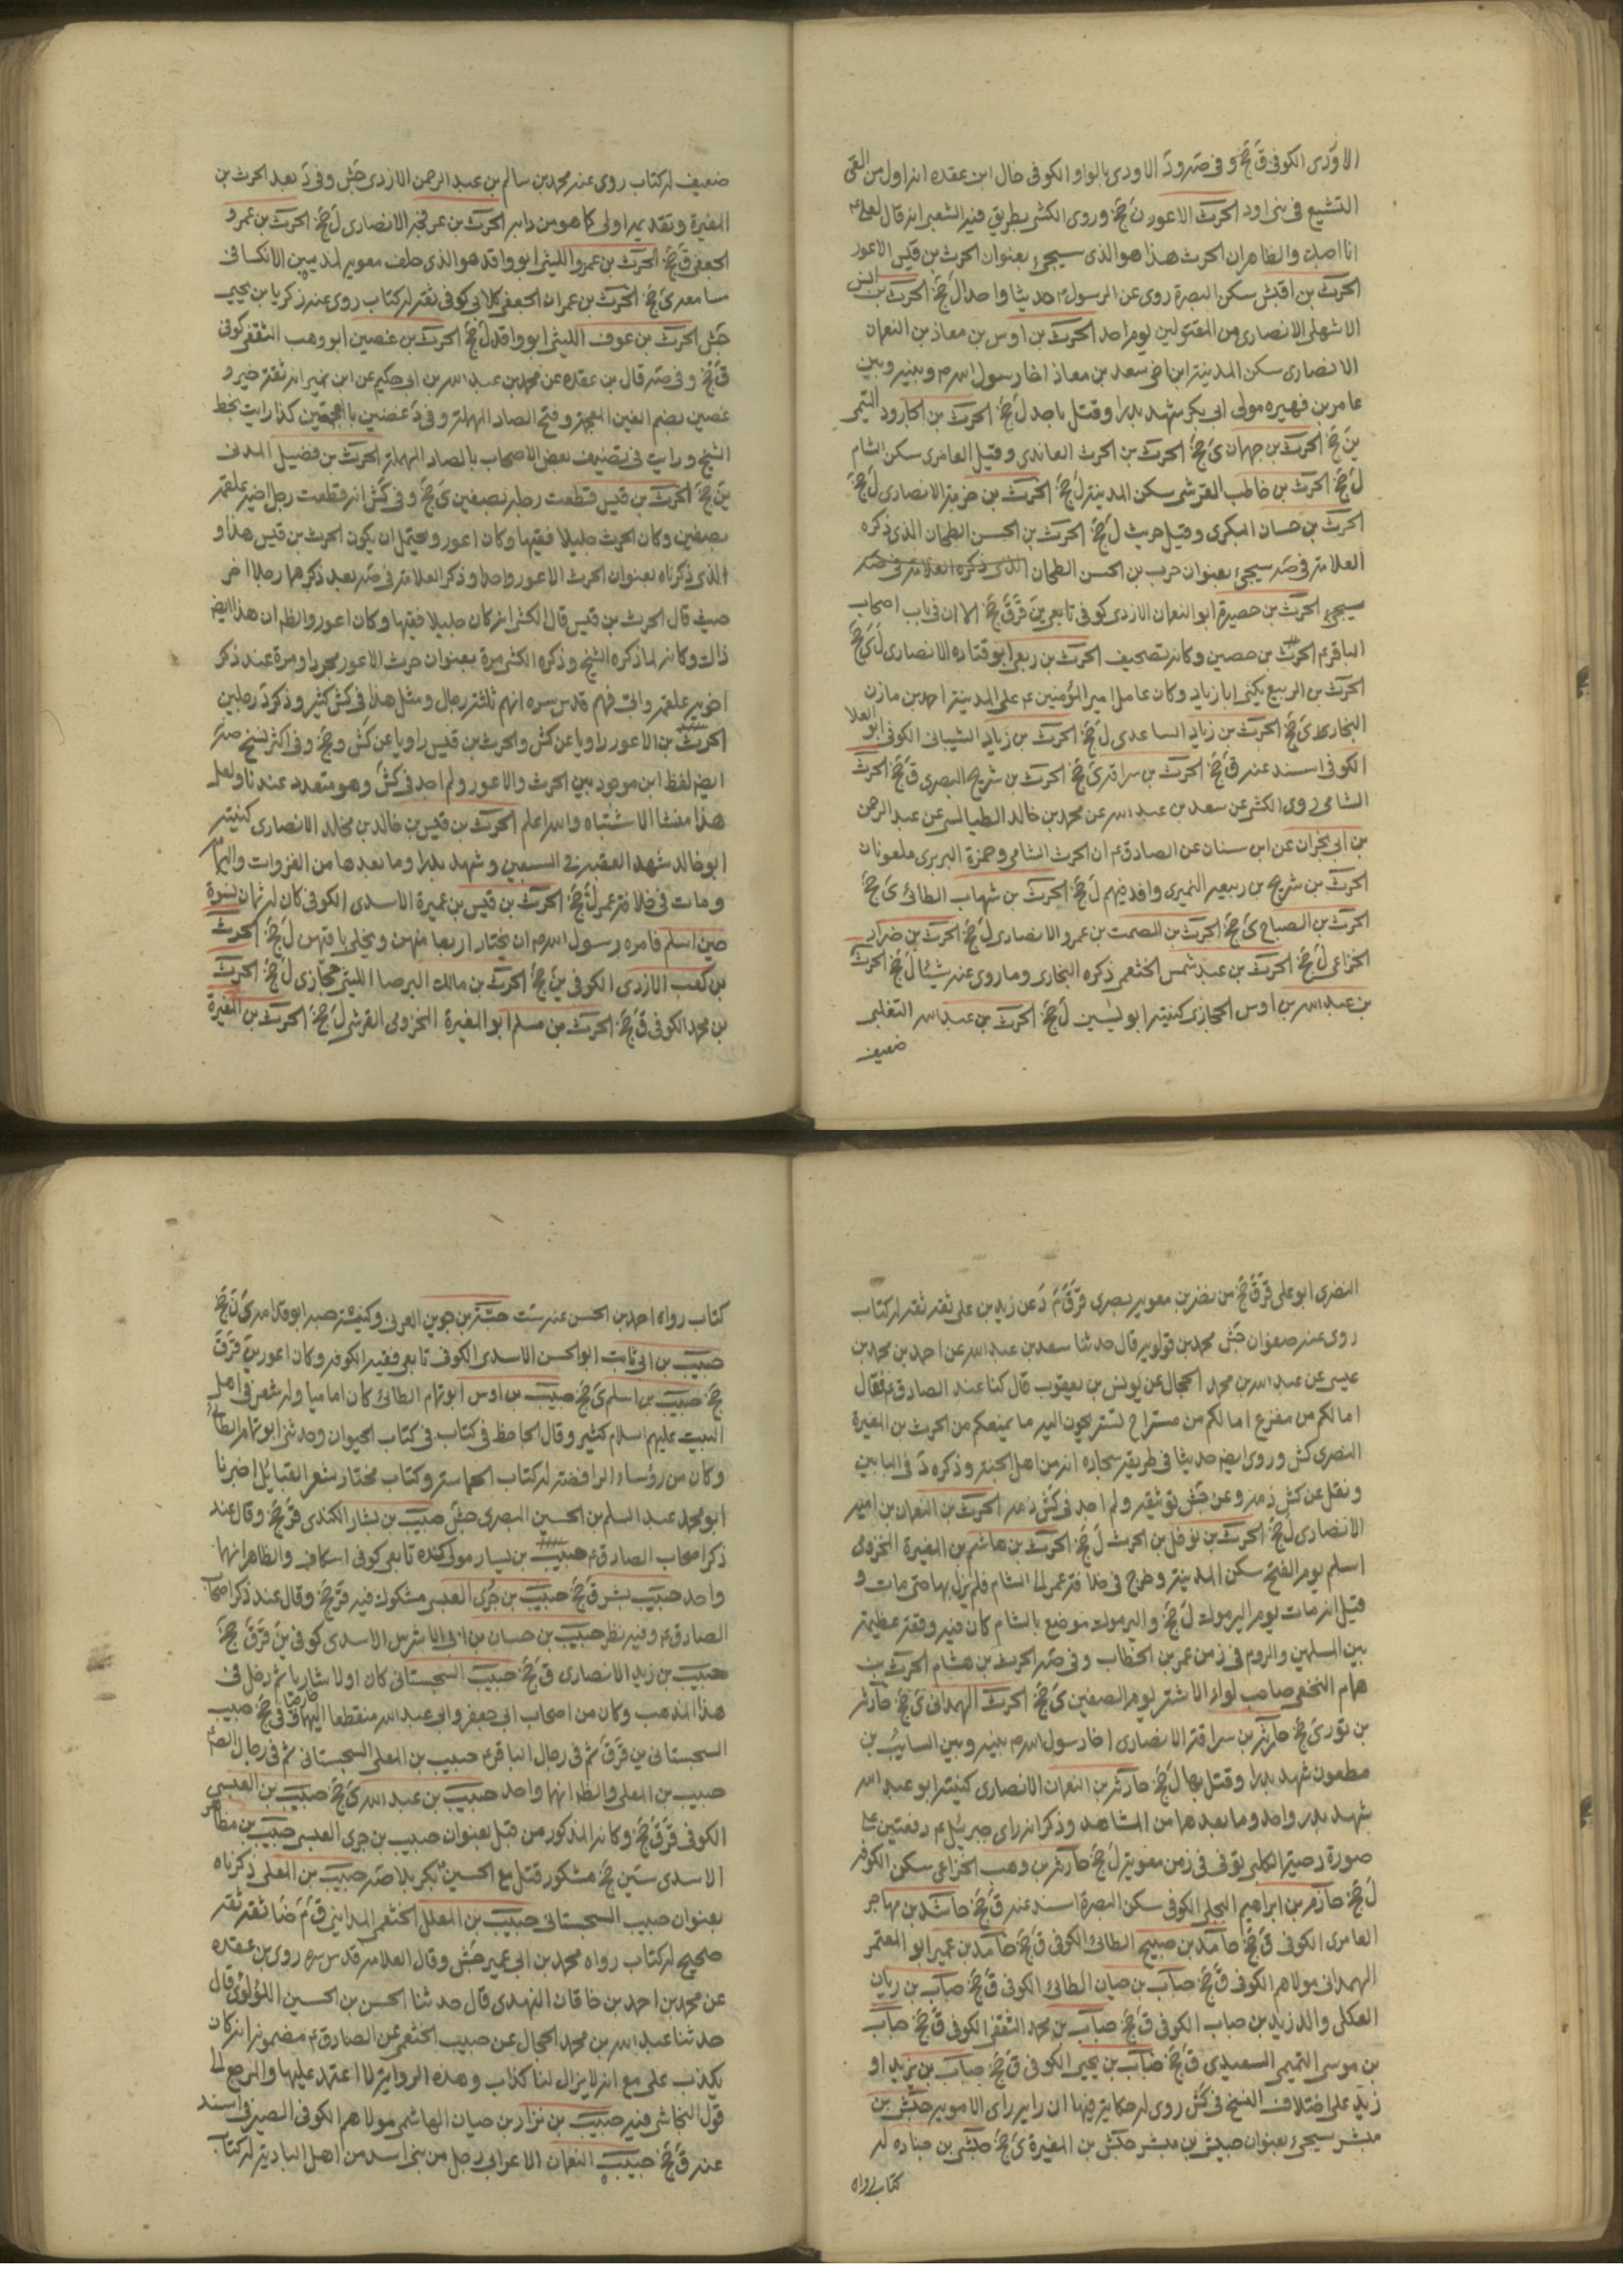 الاودى الكوفى ق جخ وفى صه ود الاودى بالواو الكوفى خال ابن عقده انه اول من القى
التشيع فى بنى اود الحرث الاعور ن جخ وروى الكشى بطريق فيه الشعبى انه قال لعلى ع
انا احبك والظاهر ان الحرث هذا هو الذى سيجئ بعنوان الحرث بن قيس الاعور
الحرث بن اقيش سكن البصرة روى عن الرسول ص حديثا واحدا ل جخ الحرث بن انس
الاشهلى الانصارى من المقتولين يوم احد الحرث بن اوس بن معاذ بن النعمان
الانصارى سكن المدينة ابن اخى سعد بن معاذ اخا رسول الله ص بينه وبين
عامر بن فهيره مولى ابى بكر شهد بدرا وقتل باحد ل جخ الحرث بن الجارود التيمى
ين جخ الحرث بن جمهان ى جخ الحرث بن الحرث العاندى وقيل العامرى سكن الشام
ل جخ الحرث بن خاطب القرشى سكن المدينة ل جخ الحرث بن خزيمة الانصارى ل جخ
الحرث بن حسان البكرى وقيل حريث ل جخ الحرث بن الحسن الطحان الذى ذكره
العلامة فى صه سيجئ بعنوان حرب بن الحسن الطحان الذى ذكره العلامة فى صه
سيجئ الحرث بن حصيرة ابو النعمان الازدى كوفى تابعى ين قر ق جخ الا ان فى باب اصحاب
الباقر ع الحرث بن حصين وكانه تصحيف الحرث بن ربعى ابو قتاده الانصارى ل ى جخ
الحرث بن الربيع يكنى ابا زياد وكان عامل امير المؤمنين ع على المدينة احد بن مازن
النجار ى جخ الحرث بن زياد الساعدى ل جخ الحرث بن زياد الشيبانى الكوفى ابو العلا
الكوفى اسند عنه ق جخ الحرث بن سراقة ى جخ الحرث بن شريح البصرى ق جخ الحرث
الشامى روى الكشى عن سعد بن عبد الله عن محمد بن خالد الطيالسى عن عبد الرحمن
بن ابى نجران عن ابن سنان عن الصادق ع ان الحرث الشامى وحمزة البربرى ملعونان
الحرث بن شريح بن ربيعه النميرى وافد فيهم ل جخ الحرث بن شهاب الطائى ى جخ
الحرث بن الصباح ى جخ الحرث بن الصمت بن عمرو الانصارى ل جخ الحرث بن ضرار
الخزاعى ل جخ الحرث بن عبد شمس الخثعمى ذكره البخارى وما روى عنه شيئا ل جخ الحرث
بن عبد الله بن اوس الحجازى كنيته ابو بشير ل جخ الحرث بن عبد الله التغلبى
ضعيف
ضعيف له كتاب روى عنه محمد بن سالم بن عبد الرحمن الازدى جش وفى د بعد الحرث بن
المغيرة وتقديمه اولى كما هو من دابه الحرث بن عرفجه الانصارى ل جخ الحرث بن عمرو
الجعفى ق جخ الحرث بن عمرو الليثى ابو واقد هو الذى حلف معويه ليذيبن الانك فى
مسامعه ى جخ الحرث بن عمران الجعفرى كلابى كوفى ثقة له كتاب روى عنه زكريا بن يحيى
جش الحرث بن عوف الليثى ابو واقد ل جخ الحرث بن غصين ابو وهب الثقفى كوفى
ق جخ وفى صه قال بن عقده عن محمد بن عبد الله بن ابى حكيم عن ابن نمير انه ثقة خير و
غصين بضم الغين المعجمة وفتح الصاد المهملة وفى د غضين بالمعجمتين كذا رايت بخط
الشيخ ورايت فى تصنيف بعض الاصحاب بالصاد المهملة الحرث بن فضيل المدنى
ين جخ الحرث بن قيس قطعت رجله بصفين ى جخ وفى كش انه قطعت رجل اخيه علقمه
بصفين وكان الحرث جليلا فقيها وكان اعور ويحتمل ان يكون الحرث بن قيس هذا و
الذى ذكرناه بعنوان الحرث الاعور واحدا وذكر العلامة فى صه بعد ذكرهما رجلا اخر
حيث قال الحرث بن قيس قال الكشى انه كان جليلا فقيها وكان اعور والظ ان هذا ايض
ذاك وكانه لما ذكره الشيخ وذكره الكشى مرة بعنوان حرث الاعور مجردا ومرة عند ذكر
اخويه علقمه وابى فهم قدس سره انهم ثلثة رجال ومثل هذا فى كش كثير وذكر د رجلين
الحرث بن الاعور راويا عن كش والحرث بن قيس راويا عن كش وجخ وفى اكثر نسخ صه
ايض لفظ ابن موجود بين الحرث والاعور ولم اجد فى كش وهو متعدد عندنا ولعل
هذا منشا الاشتباه والله اعلم الحرث بن قيس بن خالد بن مخلد الانصارى كنيته
ابو خالد شهد العقبة فى السبعين وشهد بدرا وما بعدها من الغزوات واليمامة
ومات فى خلافة عمر ل جخ الحرث بن قيس بن عميرة الاسدى الكوفى كان له ثمان نسوة
حين اسلم فامره رسول الله ص ان يختار اربعا منهن ويخلى باقيهن ل جخ الحرث
بن كعب الازدى الكوفى ين جخ الحرث بن مالك البرصا الليثى حجازى ل جخ الحرث
بن محمد الكوفى ق جخ الحرث بن مسلم ابو المغيرة المخزومى القرشى ل جخ الحرث بن المغيرة
النضرى ابو على قر ق جخ من نضر بن معويه بصرى قر ق م د عن زيد بن على ثقة ثقة له كتاب
روى عنه صفوان جش محمد بن قولويه قال حدثنا سعد بن عبد الله عن احمد بن محمد بن
عيسى عن عبد الله بن محمد الحجال عن يونس بن يعقوب قال كنا عند الصادق ع فقال
اما لكم من مفزع اما لكم من مستراح تستريحون اليه ما يمنعكم من الحرث بن المغيرة
النضرى كش وروى ايض حديثا فى طريقه سجاده انه من اهل الجنة وذكره د فى البابين
ونقل عن كش ذمه وعن جش توثيقه ولم اجد فى كش ذمه الحرث بن النعمان بن اميه
الانصارى ل جخ الحرث بن نوفل بن الحرث ل جخ الحرث بن هاشم بن المغيرة المخزومى
اسلم يوم الفتح سكن المدينة وخرج فى خلافة عمر الى الشام فلم يزل بها حتى مات و
قيل انه مات يوم اليرموك ل جخ واليرموك موضع بالشام كان فيه وقعة عظيمة
بين المسلمين والروم فى زمن عمر بن الخطاب وفى صه الحرث بن هشام الحرث بن
همام النخعى صاحب لواء الاشتر يوم الصفين ى جخ الحرث الهمدانى ى جخ حارثه
بن ثور ى جخ حارثه بن سراقة الانصارى اخا رسول الله ص بينه وبين السايب بن
مظعون شهد بدرا وقتل بها ل جخ حارثه بن النعمان الانصارى كنيته ابو عبد الله
شهد بدر واحد وما بعدها من المشاهد وذكر انه راى جبرئيل ع دفعتين على
صورة دحية الكلبى توفى فى زمن معوية ل جخ حارثه بن وهب الخزاعى سكن الكوفه
ل جخ حازم بن ابراهيم البجلى الكوفى سكن البصرة اسند عنه ق جخ حاشد بن مهاجر
العامرى الكوفى ق جخ حامد بن صبيح الطائى الكوفى ق جخ حامد بن عمير ابو المعتمر
الهمدانى مولاهم الكوفى ق جخ حباب بن حيان الطائى الكوفى ق جخ حباب بن ريان
العكلى والد زيد بن حباب الكوفى ق جخ حباب بن محمد الثقفى الكوفى ق جخ حباب
بن موسى التميمى السعيدى ق جخ حباب بن يحيى الكوفى ق جخ حباب بن يزيد او
زيد على اختلاف النسخ فى كش روى له حكاية فيها ان رايه راى الامويه حبش بن
مبشر سيجئ بعنوان حبيش بن مبشر حبش بن المغيرة ى جخ حبشى بن جناده له
كتاب رواه
كتاب رواه احمد بن الحسن عنه ست حبة بن جوين العرنى وكنيته حبه ابو قدامه ى ن جخ
حبيب بن ابى ثابت ابو الحسن الاسدى الكوفى تابعى فقيه الكوفه وكان اعور ين قر ق
جخ حبيب بن اسلم ى جخ حبيب بن اوس ابو تمام الطائى كان اماميا وله شعر فى اهل
البيت عليهم اسلام كثير وقال الجاحظ فى كتاب فى كتاب الحيوان وحدثنى ابو تمام الطائى
وكان من رؤساء الرافضة له كتاب الحماسة وكتاب مختار شعر القبائل اخبرنا
ابو محمد عبد السلم بن الحسين البصرى جش حبيب بن بشار الكندى قر جخ وقال عند
ذكر اصحاب الصادق ع حبيب بن يسار مولى كنده تابعى كوفى اسكاف والظاهر انهما
واحد حبيب بشر ق جخ حبيب بن جرى العبسى مشكوك فيه قر جخ وقال عند ذكر اصحاب
الصادق ع وفيه نظر حبيب بن حسان بن ابى الاشرس الاسدى كوفى ين قر ق جخ
حبيب بن زيد الانصارى ق جخ حبيب السجستانى كان اولا شاريا ثم دخل فى
هذا المذهب وكان من اصحاب ابى جعفر وابى عبد الله منقطعا اليهما وفى جخ حبيب
السجستانى ين قر ق ثم فى رجال الباقر ع حبيب بن المعلى السجستانى ثم فى رجال الصادق
حبيب بن المعلى والظ انهما واحد حبيب بن عبد الله ى جخ حبيب بن العبسى
الكوفى قر ق جخ وكانه المذكور من قبل بعنوان حبيب بن جرى العبسى حبيب بن مظاهر
الاسدى سين جخ مشكور قتل مع الحسين ع بكربلا صه حبيب بن المعلى ذكرناه
بعنوان حبيب السجستانى حبيب بن المعلل الخثعمى المداينى ق م ضا ثقة ثقه
صحيح له كتاب رواه محمد بن ابى عمير جش وقال العلامه قدس سره روى بن عقده
عن محمد بن احمد بن خاقان النهدى قال حدثنا الحسن بن الحسين اللؤلؤى قال
حدثنا عبد الله بن محمد الحجال عن حبيب الخثعمى عن الصادق ع مضمونه انه كان
يكذب على مع انه لا يزال لنا كذاب وهذه الرواية لا اعتمد عليها والمرجع الى
قول النجاشى فيه حبيب بن نزار بن حيان الهاشمى مولاهم الكوفى الصيرفى اسند
عنه ق جخ حبيب النعمان الاعرابى رجل من بنى اسد من اهل البادية له كتاب